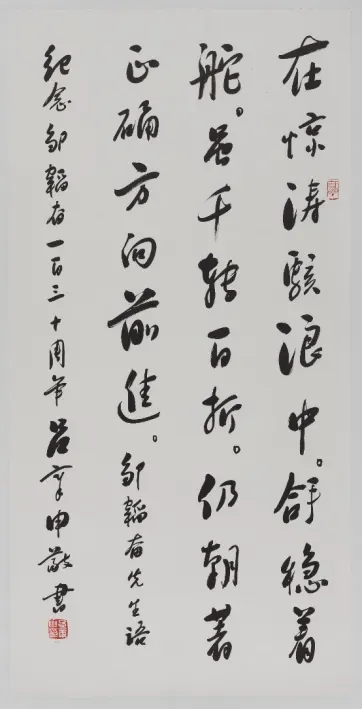 在惊涛骇浪中。稳着
舵。虽千转百折。仍朝著
正确方向前進。邹韜奋先生语
纪念邹韜奋一百三十周年 吕章申敬书